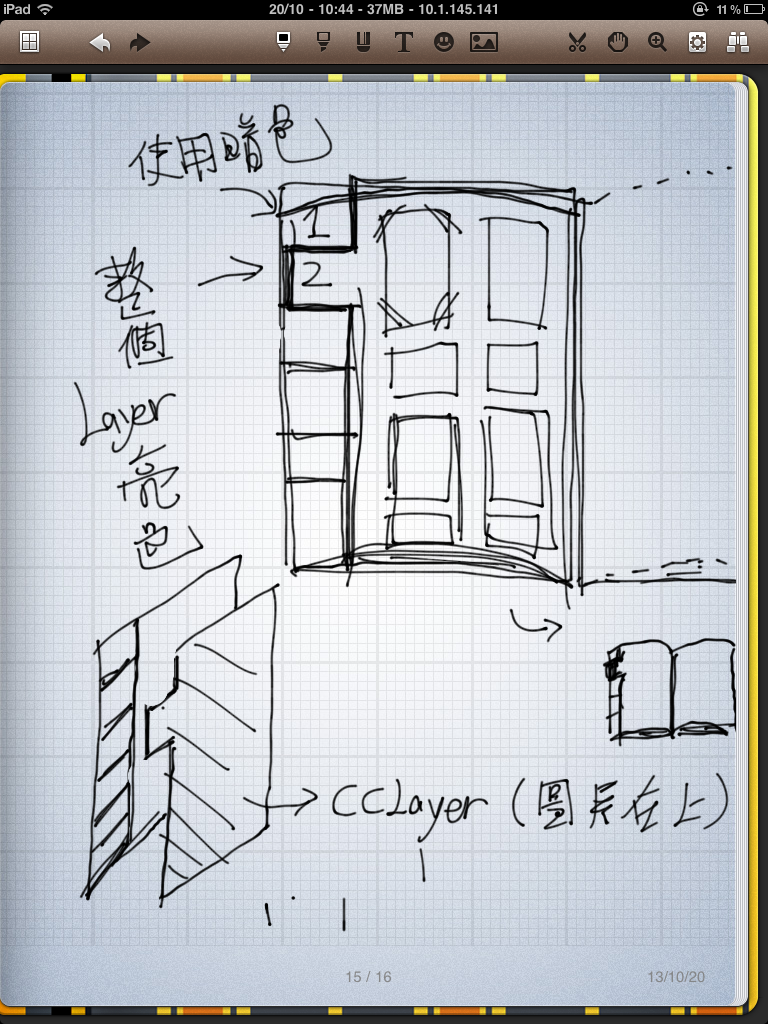 iPad 20/10 - 10:44 - 37MB - 10.1.145.141 11 %
T
使用暗色
1
2
整個
Layer
亮色
CCLayer (圖片在上)
15 / 16
13/10/20